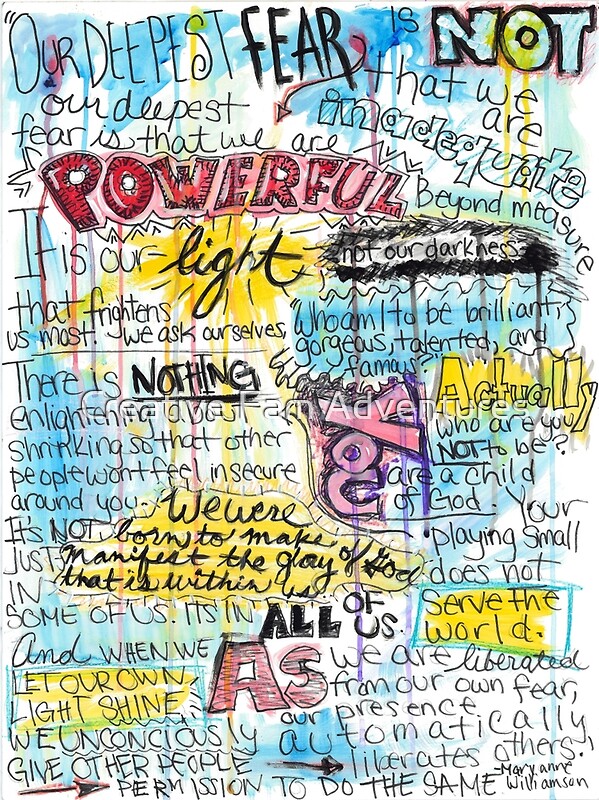 "OUR DEEPEST FEAR IS NOT
that we are
inadequate
our deepest
fear is that we are
POWERFUL
Beyond measure
It is our light
not our darkness
that frightens
us most. We ask ourselves,
"Who am I to be brilliant,
gorgeous, talented, and
famous"
Actually
who are you
NOT to be?
YOU
are a child
of God. Your
playing small
does not
Serve the
world.
There is NOTHING
enlightening about
shrinking so that other
people won't feel insecure
around you.
We were
born to make
manifest the glory of God
that is within us
It's NOT
JUST
IN
SOME OF US. ITS IN ALL OF US.
And WHEN WE
LET OUR OWN
LIGHT SHINE
WE UNCONCIOUSLY
GIVE OTHER PEOPLE
PERMISSION TO DO THE SAME
AS
we are liberated
from our own fear,
our presence
automatically
liberates others."
-Mary anne
Williamson
Creative Farn Adventures